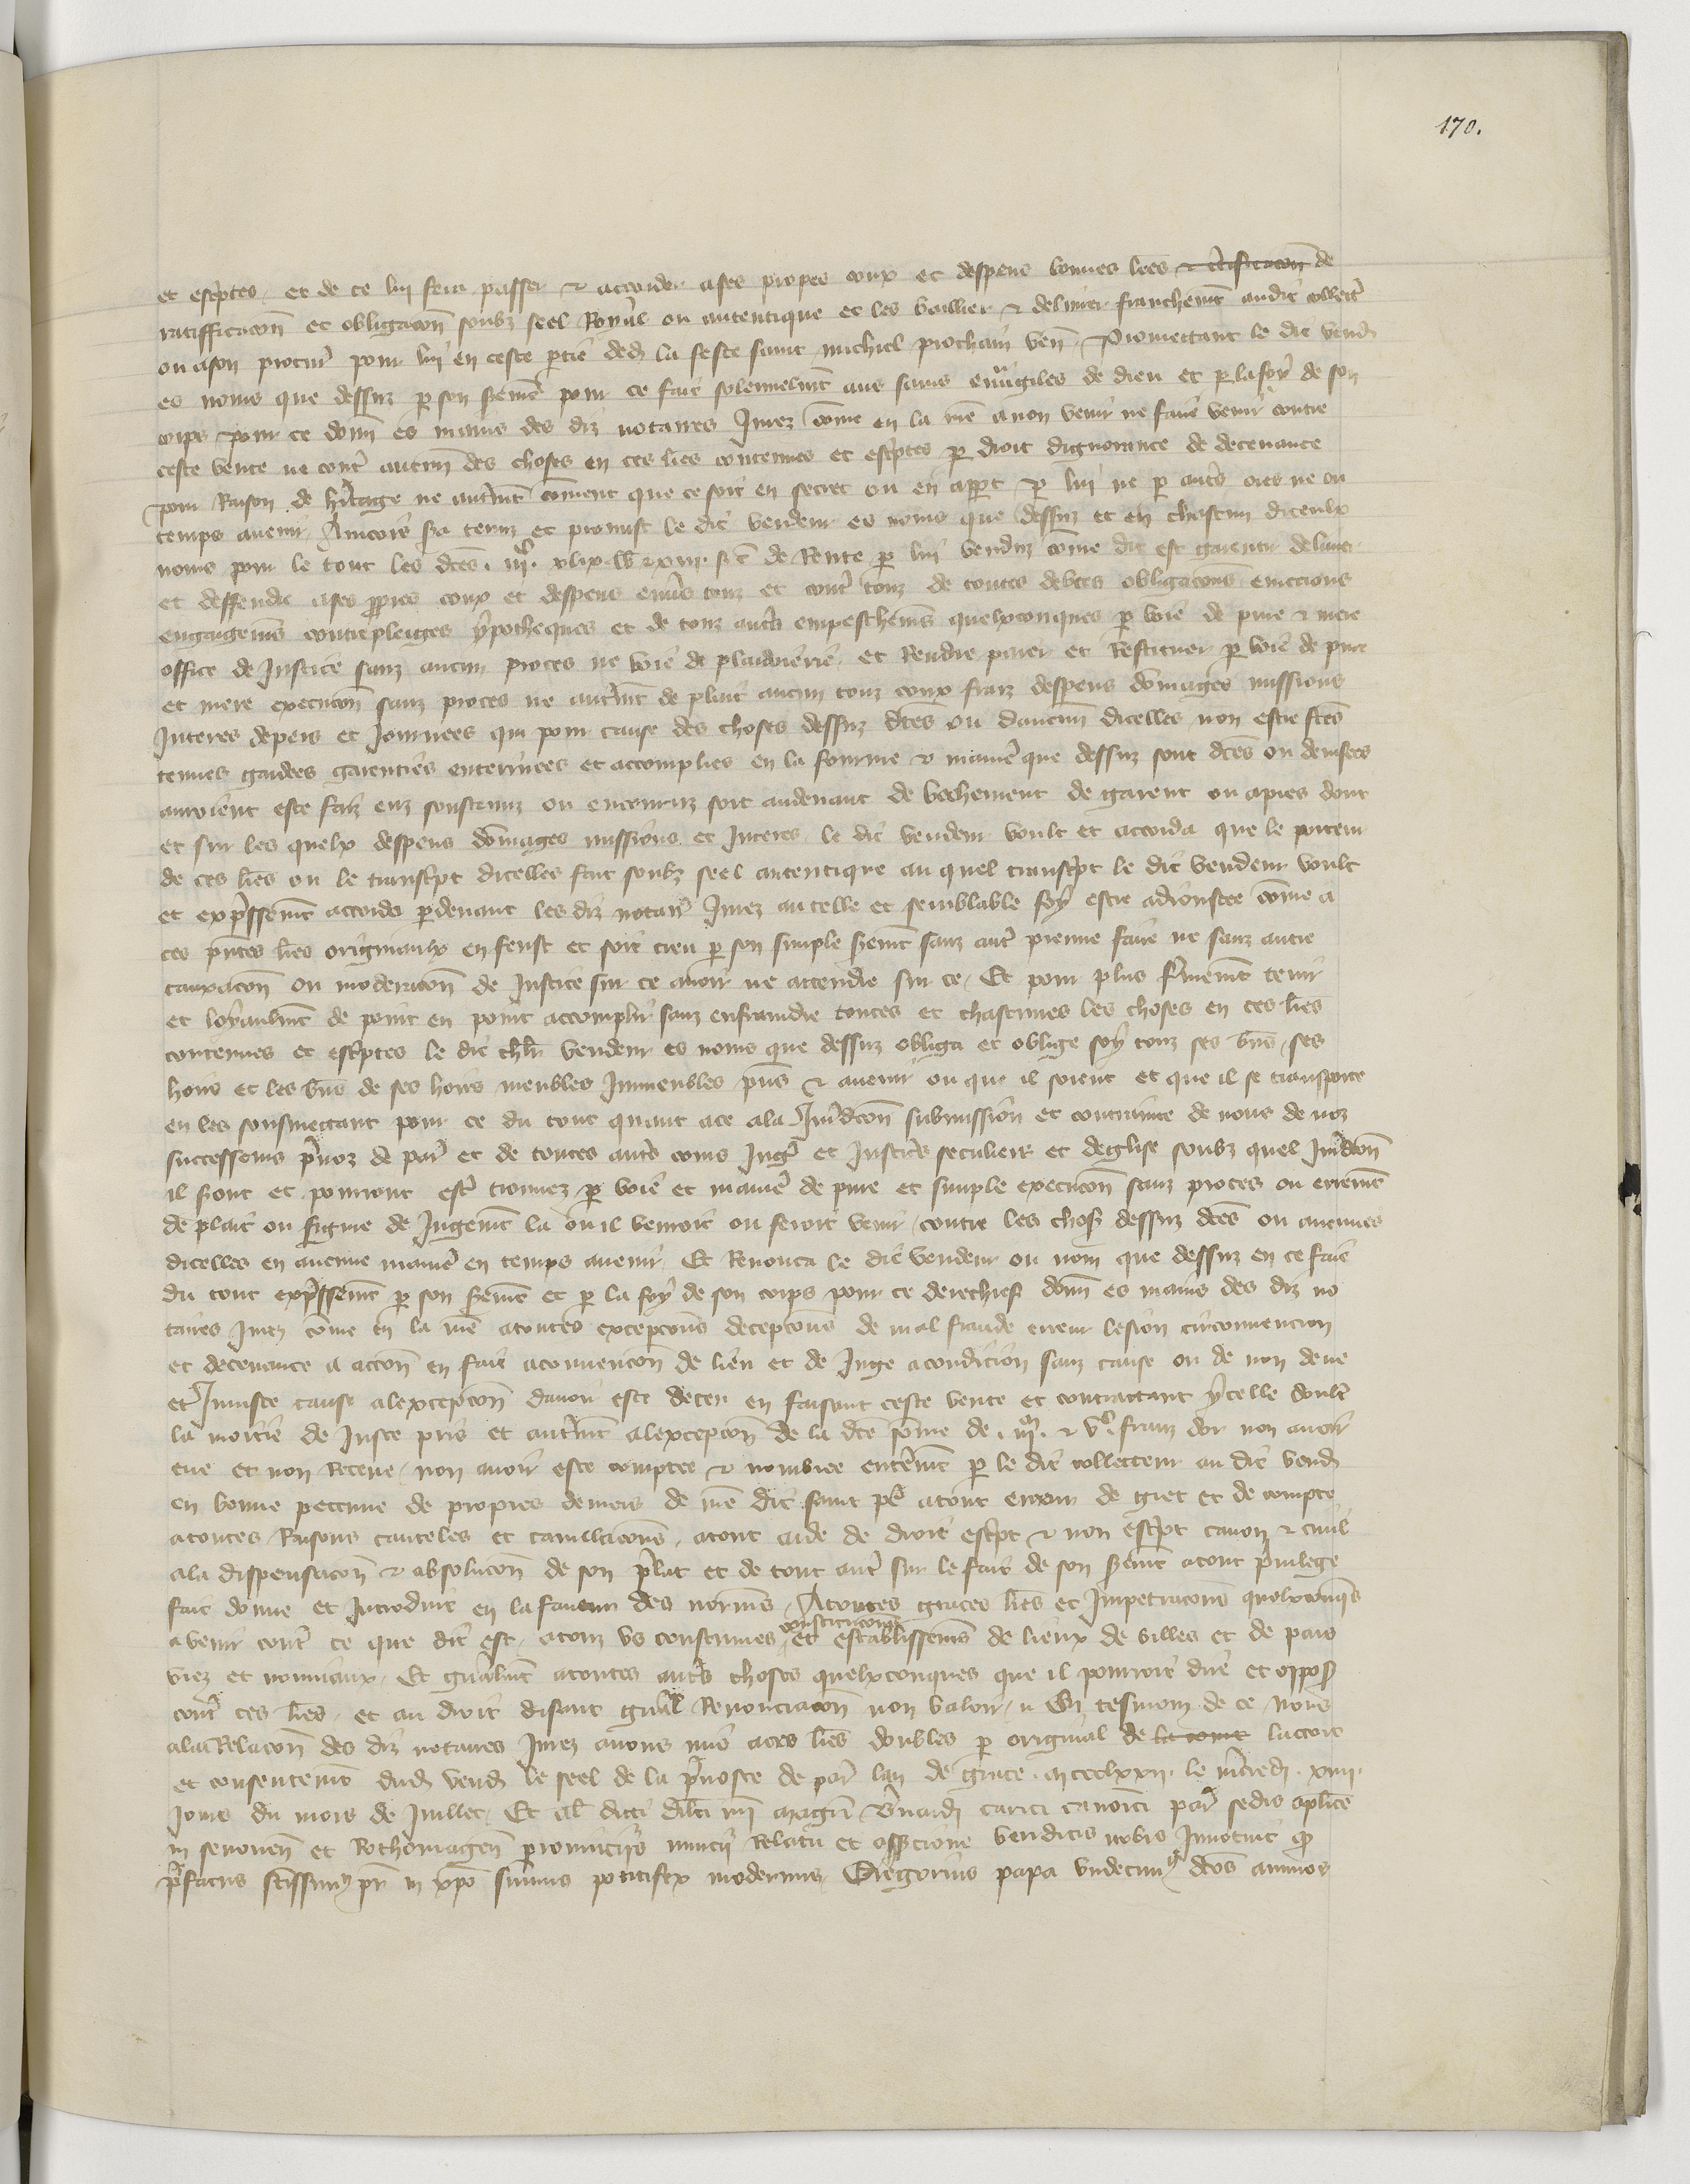 170.
et escriptes et de ce lui fera passer & accorder a ses propres coux et despens bonnes lres & ctificacon de
ratifficacon et obligacon soubz seel Royal ou autentique et les baillier & delivrer franchemt audit collect
ou a son procur pour lui en ceste ptie ded la feste saint michiel prochain ven Promettant le dit vend
es noms que dessuz p son sremt pour ce fait solennelmt aus sains euvgiles de dieu et p la foy de son
corps pour ce donn es mains des diz notaires Jurez come en la me a non venir ne faire venir contre
ceste vente ne cont aucun des choses en ces lres contenues et escptes p droit dignorance de decevance
pour Raison de hitage ne autremt coment que ce soit en secret ou en appt p lui ne p auts ores ne ou
temps avenir Ancores sra tenuz et promist le dit vendeur es noms que dessuz et en chascun diceulx
noms pour le tout les dces iiic xlix de Rente p lui venduz come dit est garentir delivrer
et deffendre a ses ppres coux et despens envs touz et cont touz de toutes debtes obligacons eviccions
engaigemens contrepleiges ypotheques et de touz auts empeschemens quelxconques p voie de pure & mere
office de Justice sanz aucun proces ne voie de plaidoierie et Rendre paier et Restituer p voie de pure
et mere execucon sanz proces ne autremt de plait aucun touz coux fraiz despens domages missions
Interes depers et Journees qui pour cause des choses dessuz dces ou daucun dicelles non estre fces
tenues gardees garenties enterinees et accomplies en la fourme & manie que dessuz sont dces ou devisees
auroient este faiz euz soustenuz ou encouruz soit audevant de vechement de garent ou apres dont
et sur les quelx despens domages missions et Interes le dit vendeur voult et accorda que le porteur
de ces lres ou le transcpt dicelles fait soubz seel autentique au quel transcpt le dit vendeur voult
et expssemt accorda pdevant les diz notair Jurez au telle et semblable foy estre adjoustee come a
ces pntes lres originaulx en feust et soit creu p son simple sremt sanz aut preuve faire ne sanz autre
tauxacon ou moderacon de Justice sur ce avoir ne attendre sur ce Et pour plus fmemt tenir
et loyaulmt de point en point accomplir sanz enfraindre toutes et chascunes les choses en ces lres
contenues et escptes le dit chlr vendeur es noms que dessuz obliga et oblige soy touz ses bns ses
hoirs et les bns de ses hoirs meubles Immeubles pns & avenir ou que il soient et que il se transporte
en les soubmettant pour ce du tout quant a ce a la Juridcon submission et contrainte de nous de noz
successeurs pvoz de par et de toutes auts cours Jug et Justices seculiers et deglise soubz quel Juridcon
il sront et pourront est trouvez p voie et manie de pure et simple execucon sanz proces ou erremt
de plait ou figure de Jugemt la ou il venroit ou feroit venir contre les choses dessuz dces ou aucunes
dicelles en aucune manie en temps avenir Et Renonca le dit vendeur ou nom que dessuz en ce fait
du tout expssemt p son sremt et p la foy de son corps pour ce derechief donn es mains des diz no
taires Jurez come en la me a toutes excepcons decepcons de mal fraude erreur lesion circonvencion
et decevance a accon en fait a convencon de lieu et de Juge a condicion sanz cause ou de non deue
et Injuste cause a lexcepcon davoir este deceu en faisant ceste vente et contrattant ycelle doult
la moitie de Juste pris et autremt a lexcepcon de la dce some de iiim & vc frans dor non avoir
eue et non Receue non avoir este comptee & nombree entremt p le dit collecteur au dit vend
en bonne peccune de propres deniers de me dit saint pe a tout erreur de giet et de compte
a toutes Raisons cauteles et cavillacons a tout aide de droit escpt & non escpt canon & civil
a la dispensacon & absolucon de son plat et de tout aut sur le fait de son sremt a tout privilege
fait donne et Introduit en la faveur des norriens A toutes graces lres et Impetracons quelxconqs
a venir cont ce que dit est a touz us coustumes constitucons et establissemens de lieux de villes et de pais
viez et nouviaux Et gnalmt a toutes auts choses quelxconques que il pourroit dire et oppos
cont ces lres et au droit disant gnal Renonciacon non valoir En tesmoing de ce Nous
a la Relacon des diz notaires Jurez avons mis a ces lres doubles p original de lacort
et consentemt dud vend le seel de la pvoste de par lan de grace mccclxxii le mcredi xiiii
Jours du mois de Juillet Et al dicti dilcti nri magri Bnardi carici canonici par sedis aplice
in senonen et Rothomagen provinciis nuncii Relatu et asscione veridicis nobis Innotuit qd
pfatus scissimus pr in xpo summus potifex modernus Gregorius papa undecimus dcos annuos